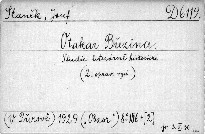 Staněk, Josef D6119.
Otakar Březina.
Studie literárně historická
(2. oprav. vyd.)
(V Přerově) 1929 („Obzor“) 8° 186+[2]